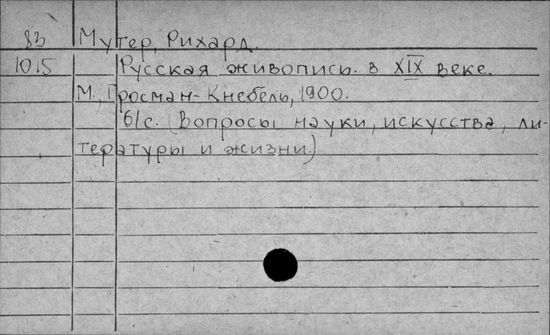 83 Мутер, Рихард.
1015 Русская живопись в XIX веке.
М., Гросман-Кнебель, 1900.
61с. (Вопросы науки, искусства, ли-
тературы и жизни.)